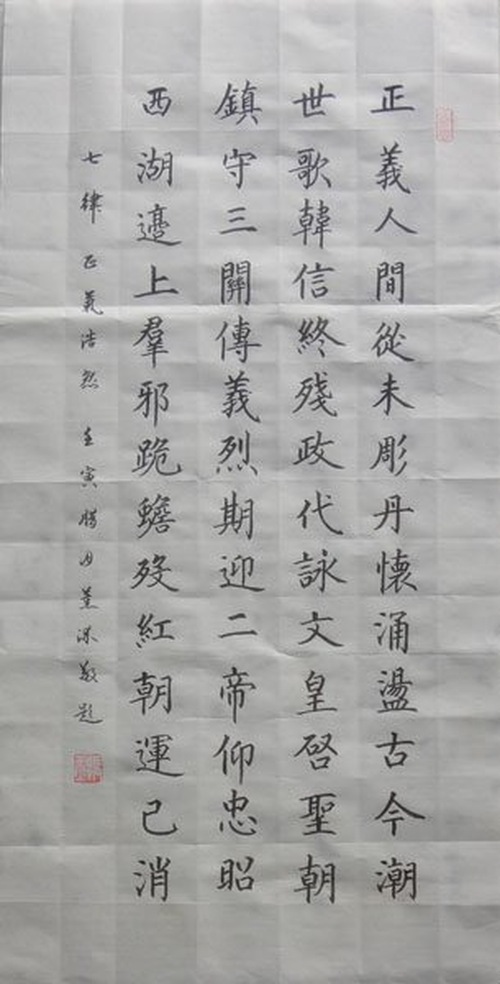 正義人間從未彫丹懷涌盪古今潮
世歌韓信終殘政代詠文皇启聖朝
鎮守三關傳義烈期迎二帝仰忠昭
西湖邊上羣邪跪蟾歿紅朝運已消
七律 正氣浩然 壬寅腊月敬題